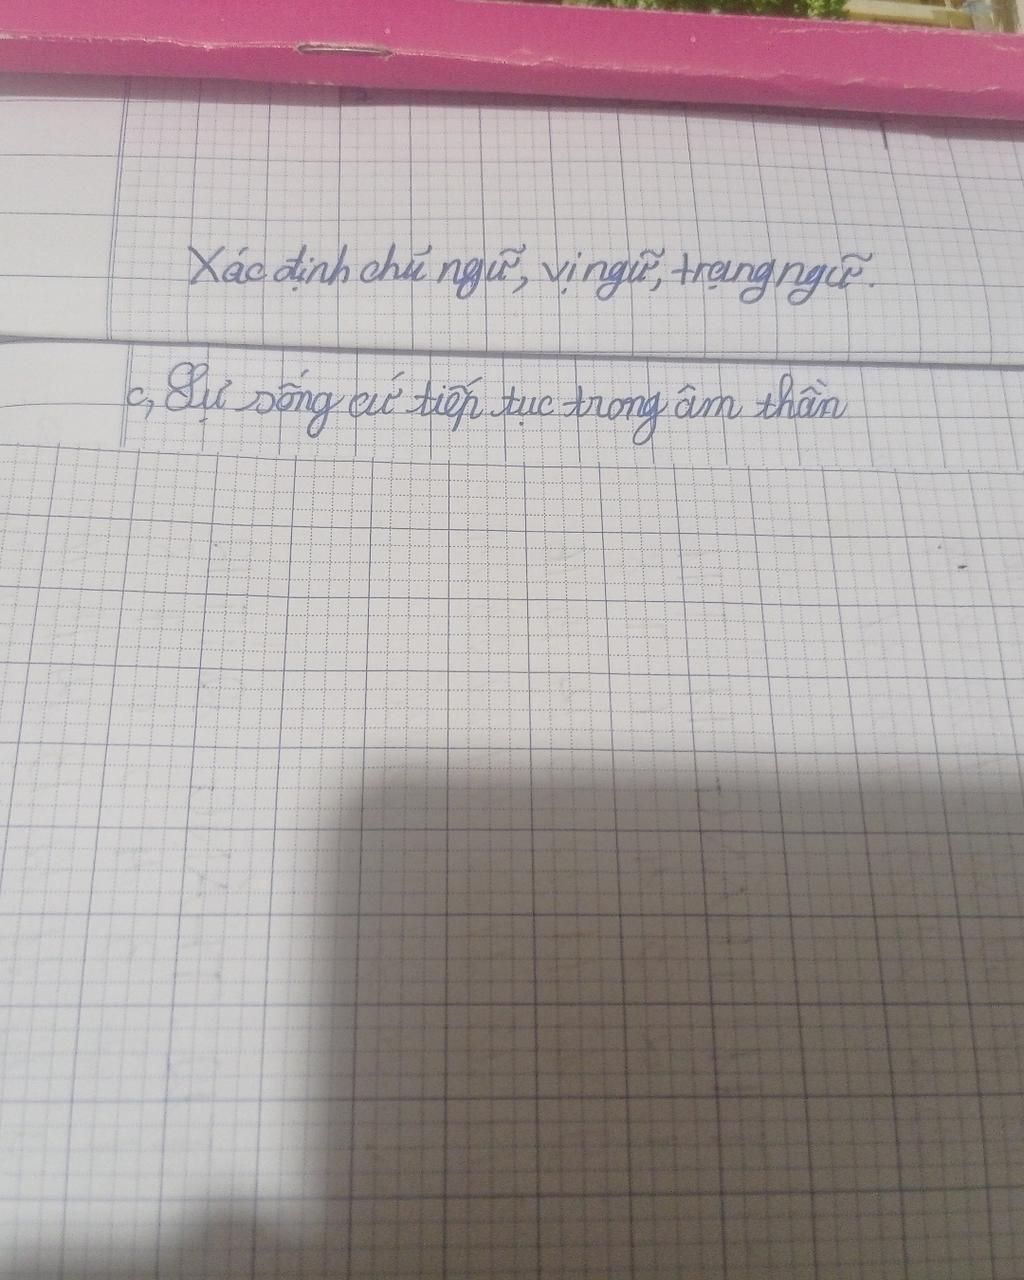 Xác định chủ ngữ, vị ngữ, trạng ngữ.
c, Sự sống cứ tiếp tục trong âm thần